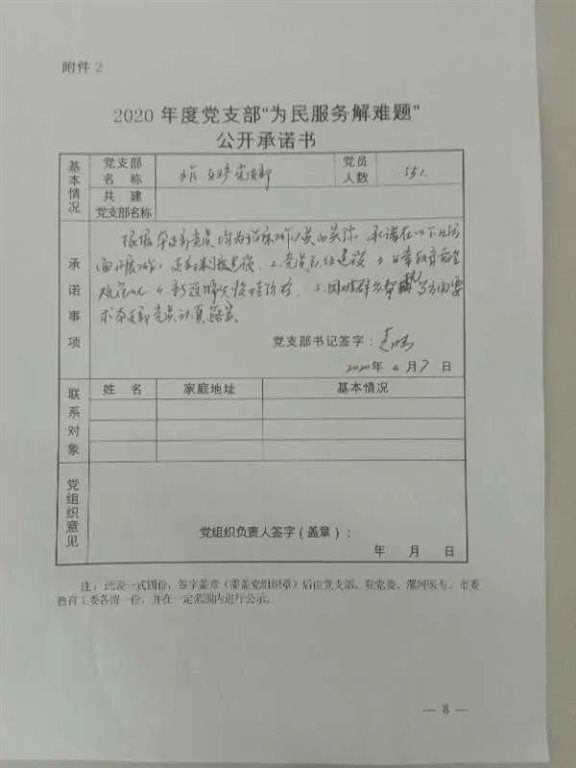 附件 2
2020 年度党支部“为民服务解难题”
公开承诺书
基本情况
党支部名称
党员人数
共建党支部名称
承诺事项
根据本支部党员均为临床工作人员的实际，承诺在以下几方
面开展工作：
2.党员队伍建设
4.新冠肺炎疫情防控
求本支部党员认真落实
党支部书记签字：
2020年 4 月 7 日
联系对象
姓 名 家庭地址 基本情况
党组织意见
党组织负责人签字（盖章）：
年 月 日
注：此表一式四份，签字盖章（需盖党组织章）后由党支部、院党委、漯河医专、市委
教育工委各留一份，并在一定范围内进行公示。
— 8 —